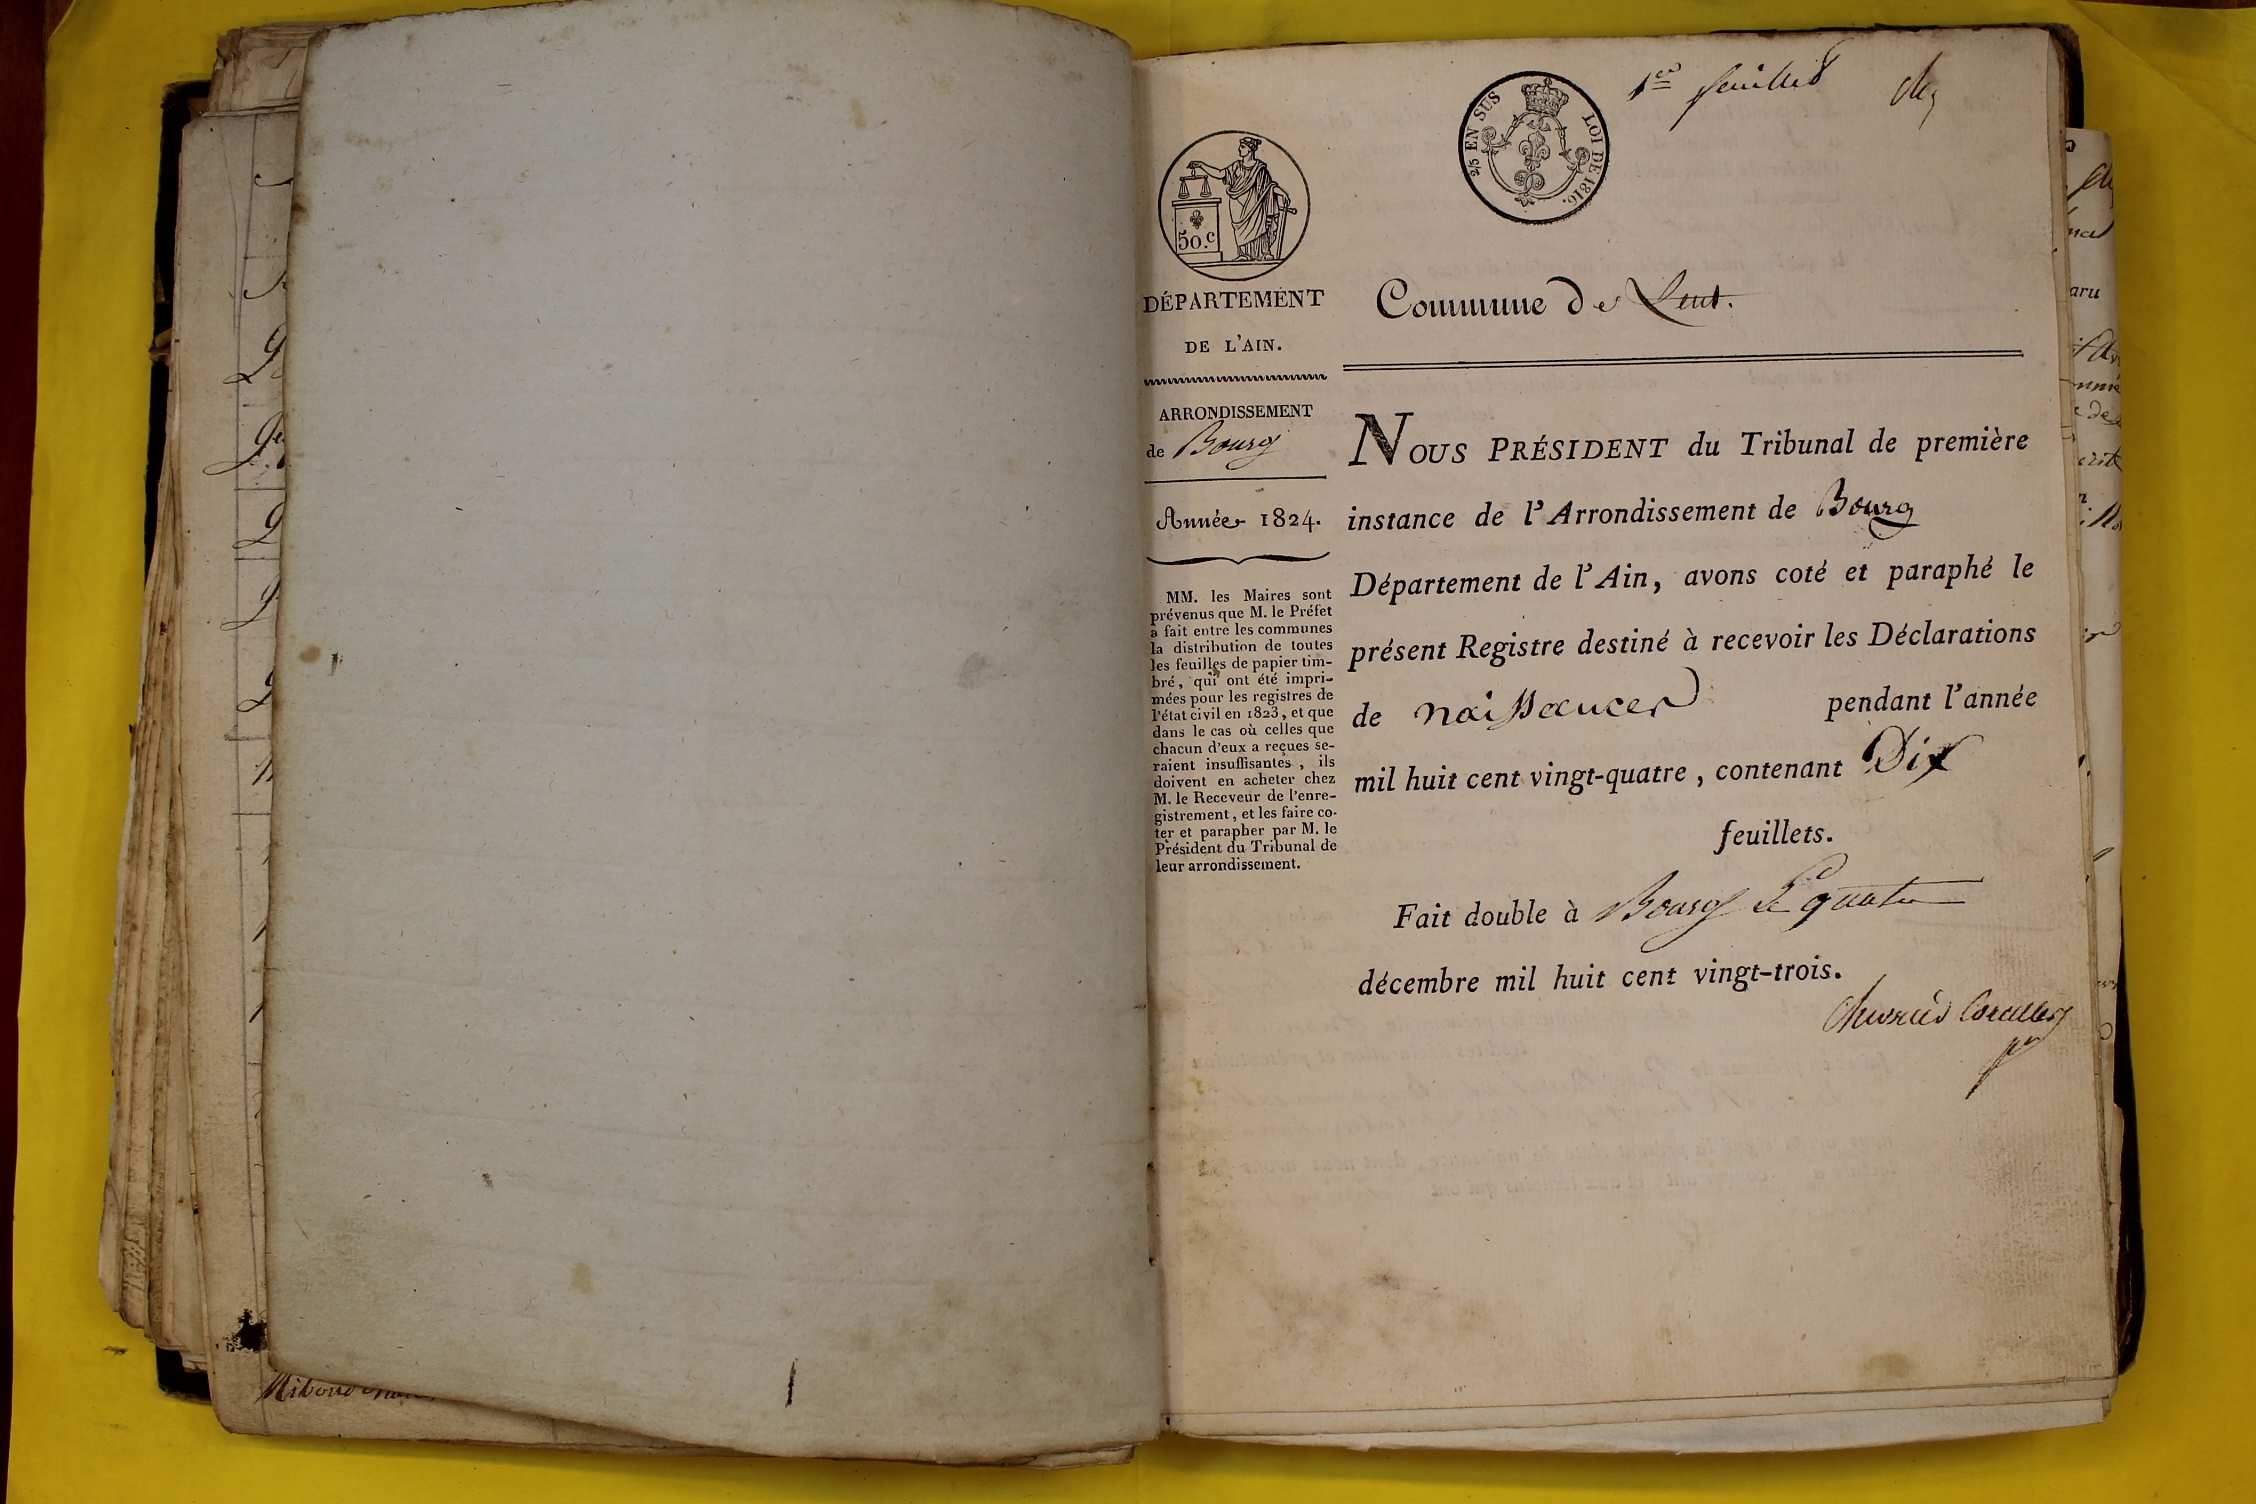 1er feuillet
2/5 EN SUS
LOI DE 1816.
50.c
DÉPARTEMENT
DE L'AIN.
ARRONDISSEMENT
de Bourg
Année 1824.
MM. les Maires sont
prévenus que M. le Préfet
a fait entre les communes
la distribution de toutes
les feuilles de papier tim-
bré, qui ont été impri-
mées pour les registres de
l'état civil en 1823, et que
dans le cas où celles que
chacun d'eux a reçues se-
raient insuffisantes, ils
doivent en acheter chez
M. le Receveur de l'enre-
gistrement, et les faire co-
ter et parapher par M. le
Président du Tribunal de
leur arrondissement.
Commune de Lent.
NOUS PRÉSIDENT du Tribunal de première
instance de l'Arrondissement de Bourg
Département de l'Ain, avons coté et paraphé le
présent Registre destiné à recevoir les Déclarations
de naissances pendant l'année
mil huit cent vingt-quatre, contenant Dix
feuillets.
Fait double à Bourg le quatre
décembre mil huit cent vingt-trois.